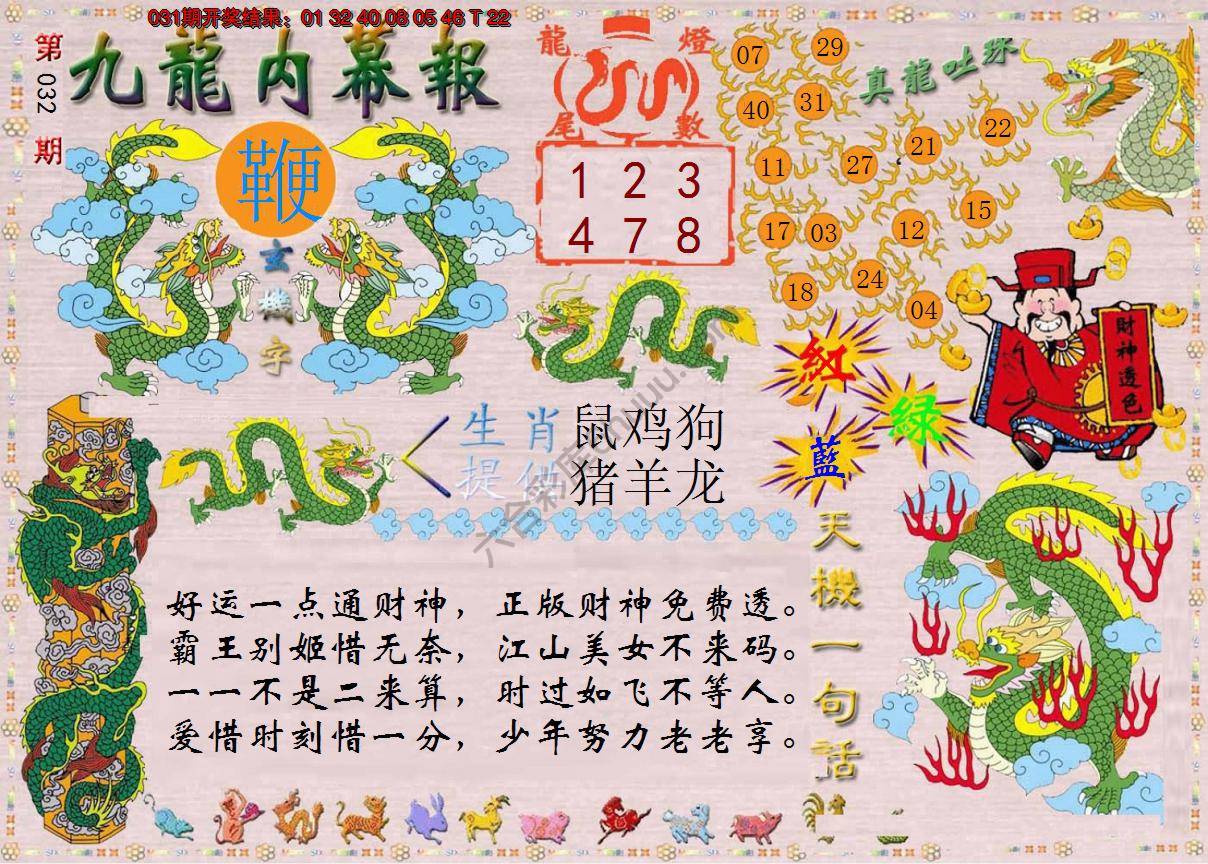 031期开奖结果：01 32 40 08 05 46 T 22
第032期
九龍内幕報
鞭
玄機字
龍燈
尾數
1 2 3
4 7 8
真龍吐珠
07
29
40
31
22
21
11
27
15
17
03
12
24
18
04
財神透色
紅
綠
藍
生肖
提供
鼠鸡狗
猪羊龙
天機一句話
好运一点通财神，正版财神免费透。
霸王别姬惜无奈，江山美女不来码。
一一不是二来算，时过如飞不等人。
爱惜时刻惜一分，少年努力老老享。